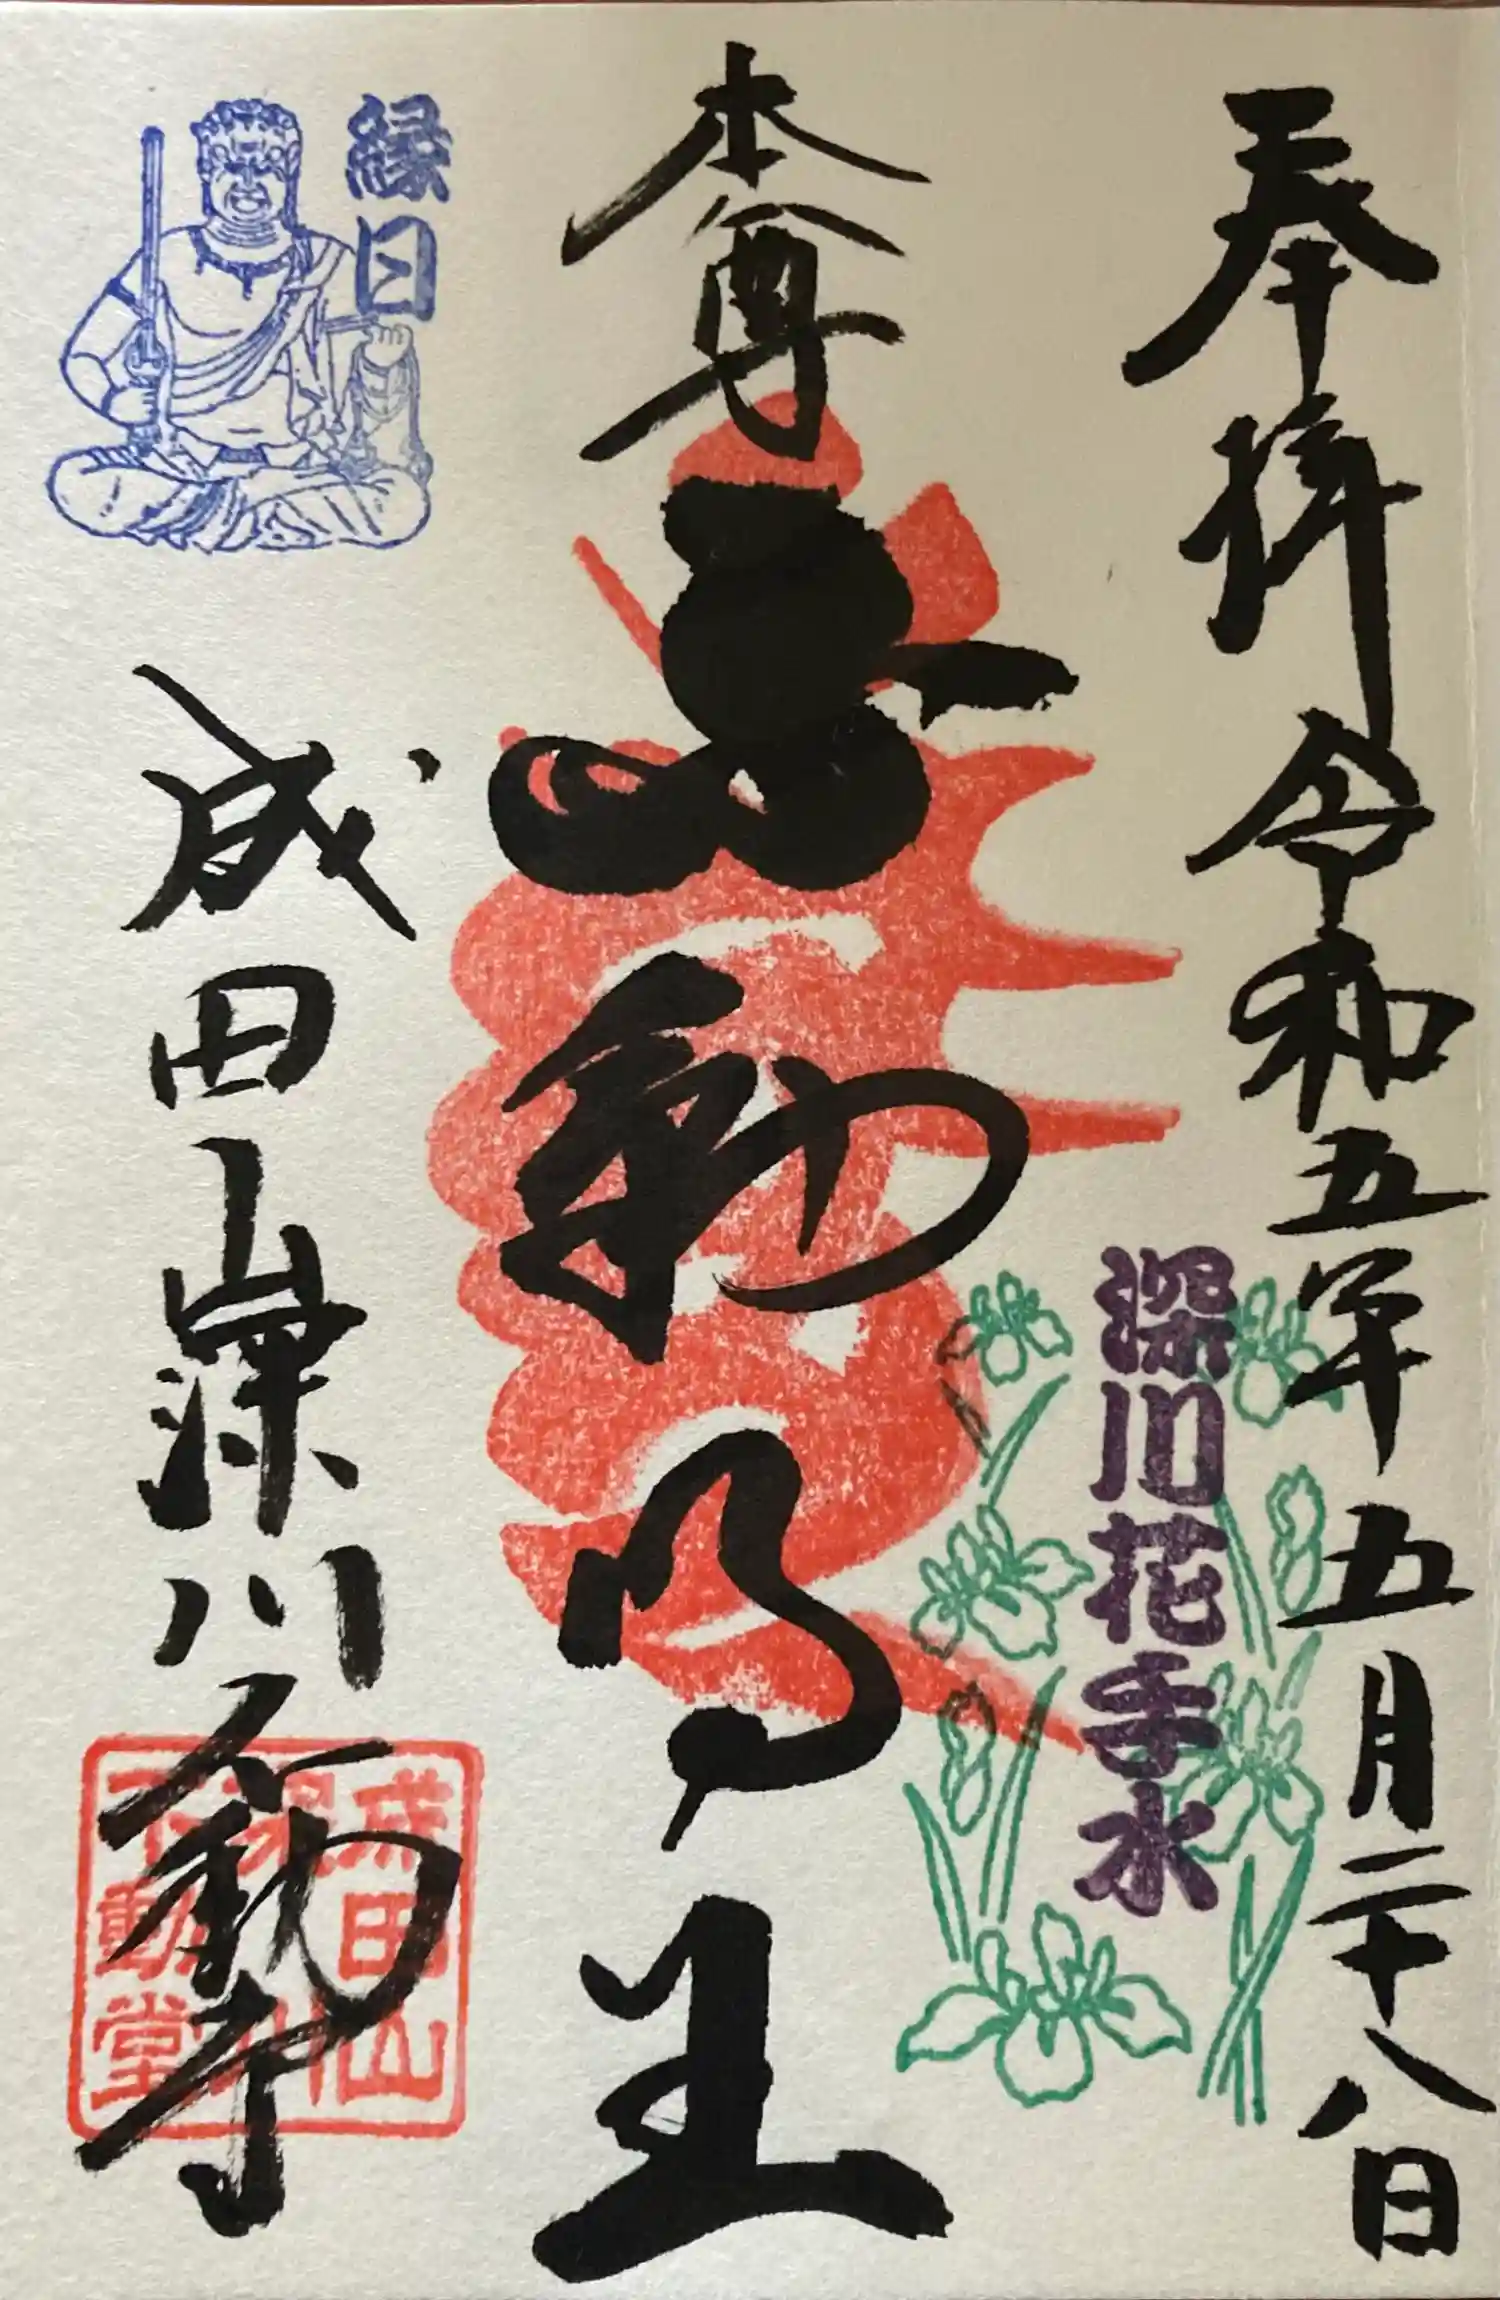 奉拝 令和五年五月二十八日
深川花手水
本尊
不動明王
縁日
成田山深川不動寺
成田山
深川
不動堂